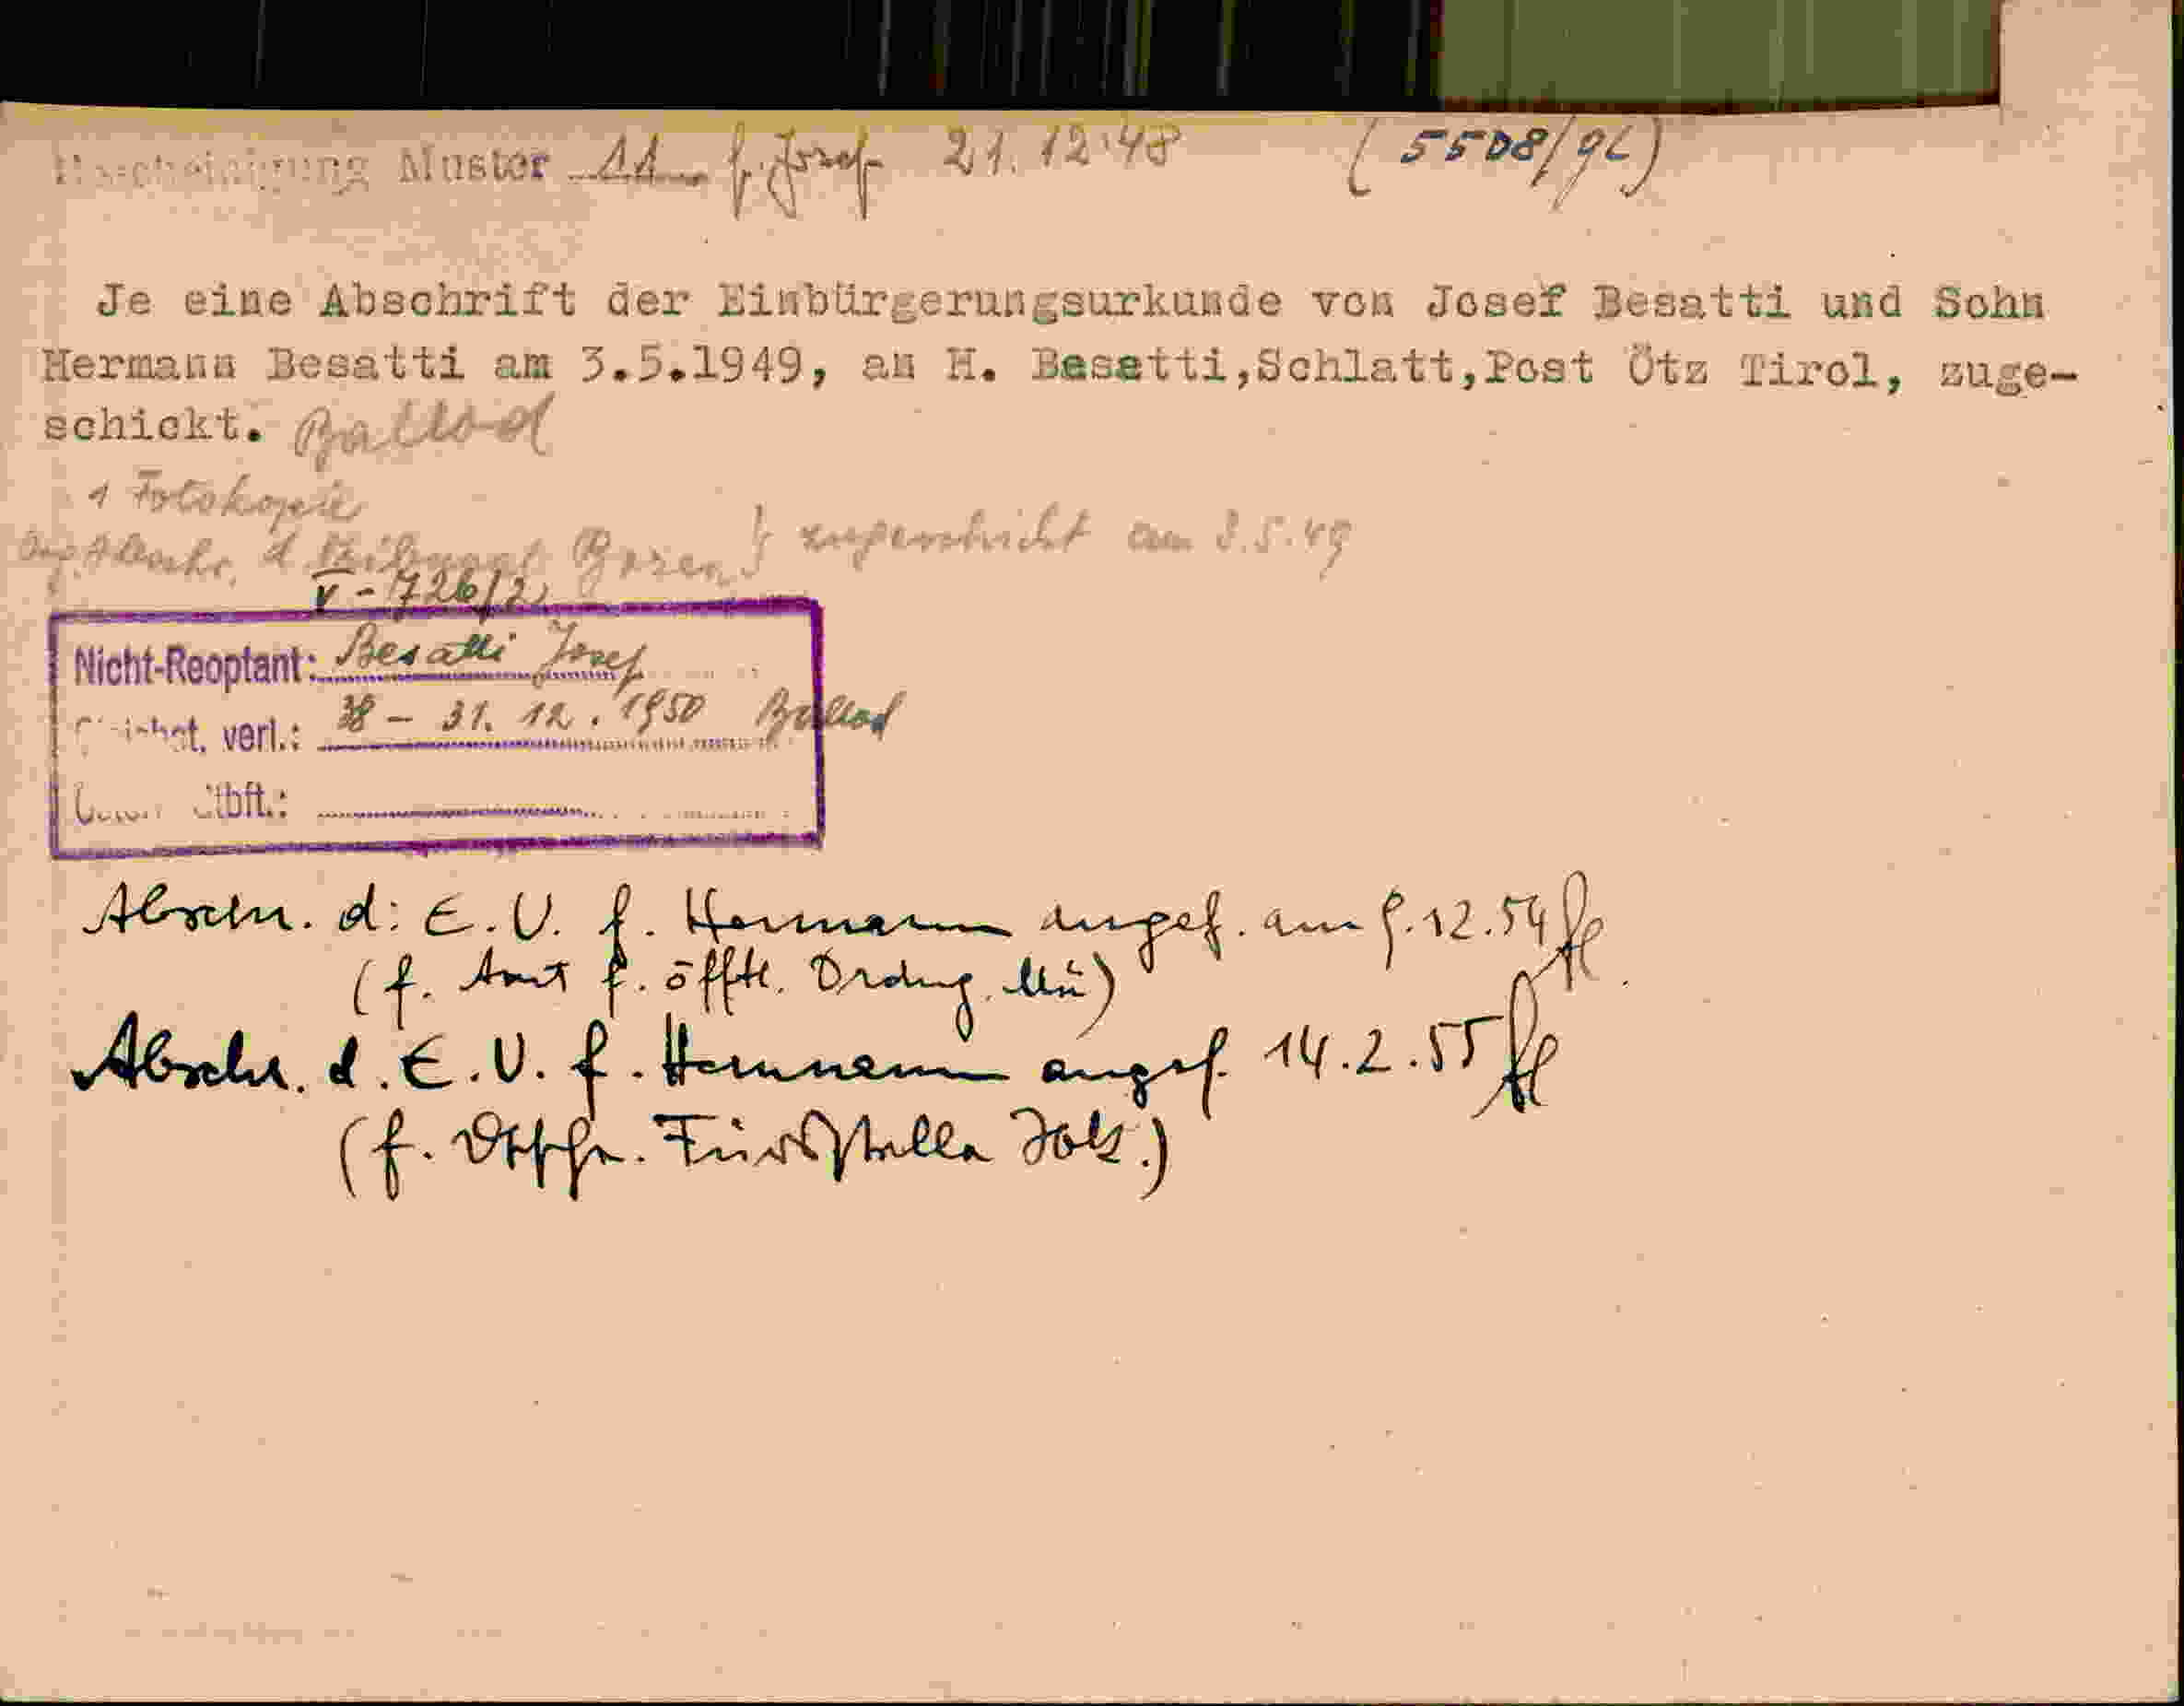 Bescheinigung Muster 11 f. Josef 21.12.48 (5508/96)
Je eine Abschrift der Einbürgerungsurkunde von Josef Besatti und Sohn
Hermann Besatti am 3.5.1949, an H. Besatti,Schlatt,Post Ötz Tirol, zuge-
schickt. Ballod
1 Fotokopie
Bozen } zugeschickt am 3.5.49
V-726/2
Nicht-Reoptant: Besatti Josef
verl.: 38 - 31.12.1950 Ballod
Stbft.:
Abschr. d. E.U. f. Hermann angef. am 9.12.54
(f. Amt f. öfftl. Ordng. Mü)
Abschr. d. E.U. f. Hermann angef. 14.2.55